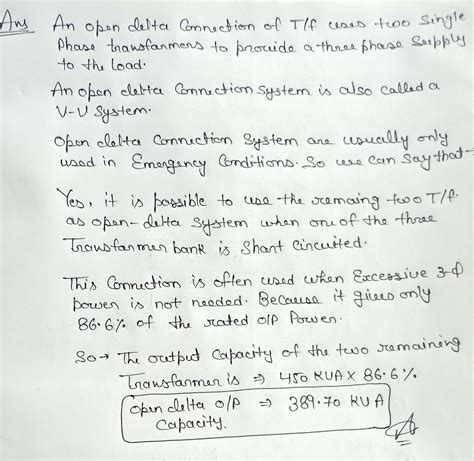 Ans An open delta Connection of T/f uses two Single
Phase transfanmers to provide a three phase Supply
to the load.
An open delta Connection system is also called a
V-V System.
Open delta Connection System are usually only
used in Emergency Conditions. So we can say that -
Yes, it is possible to use the remaing two T/f.
as open-delta system when one of the three
Transfanmer bank is Shant Cincuited.
This Connection is often used when Excessive 3-Φ
power is not needed. Because it gives only
86.6% of the rated O/P Power.
So → The output Capacity of the two remaining
Transfanmer is ⇒ 450 KVA X 86.6%
Open delta O/P ⇒ 389.70 KVA
Capacity.